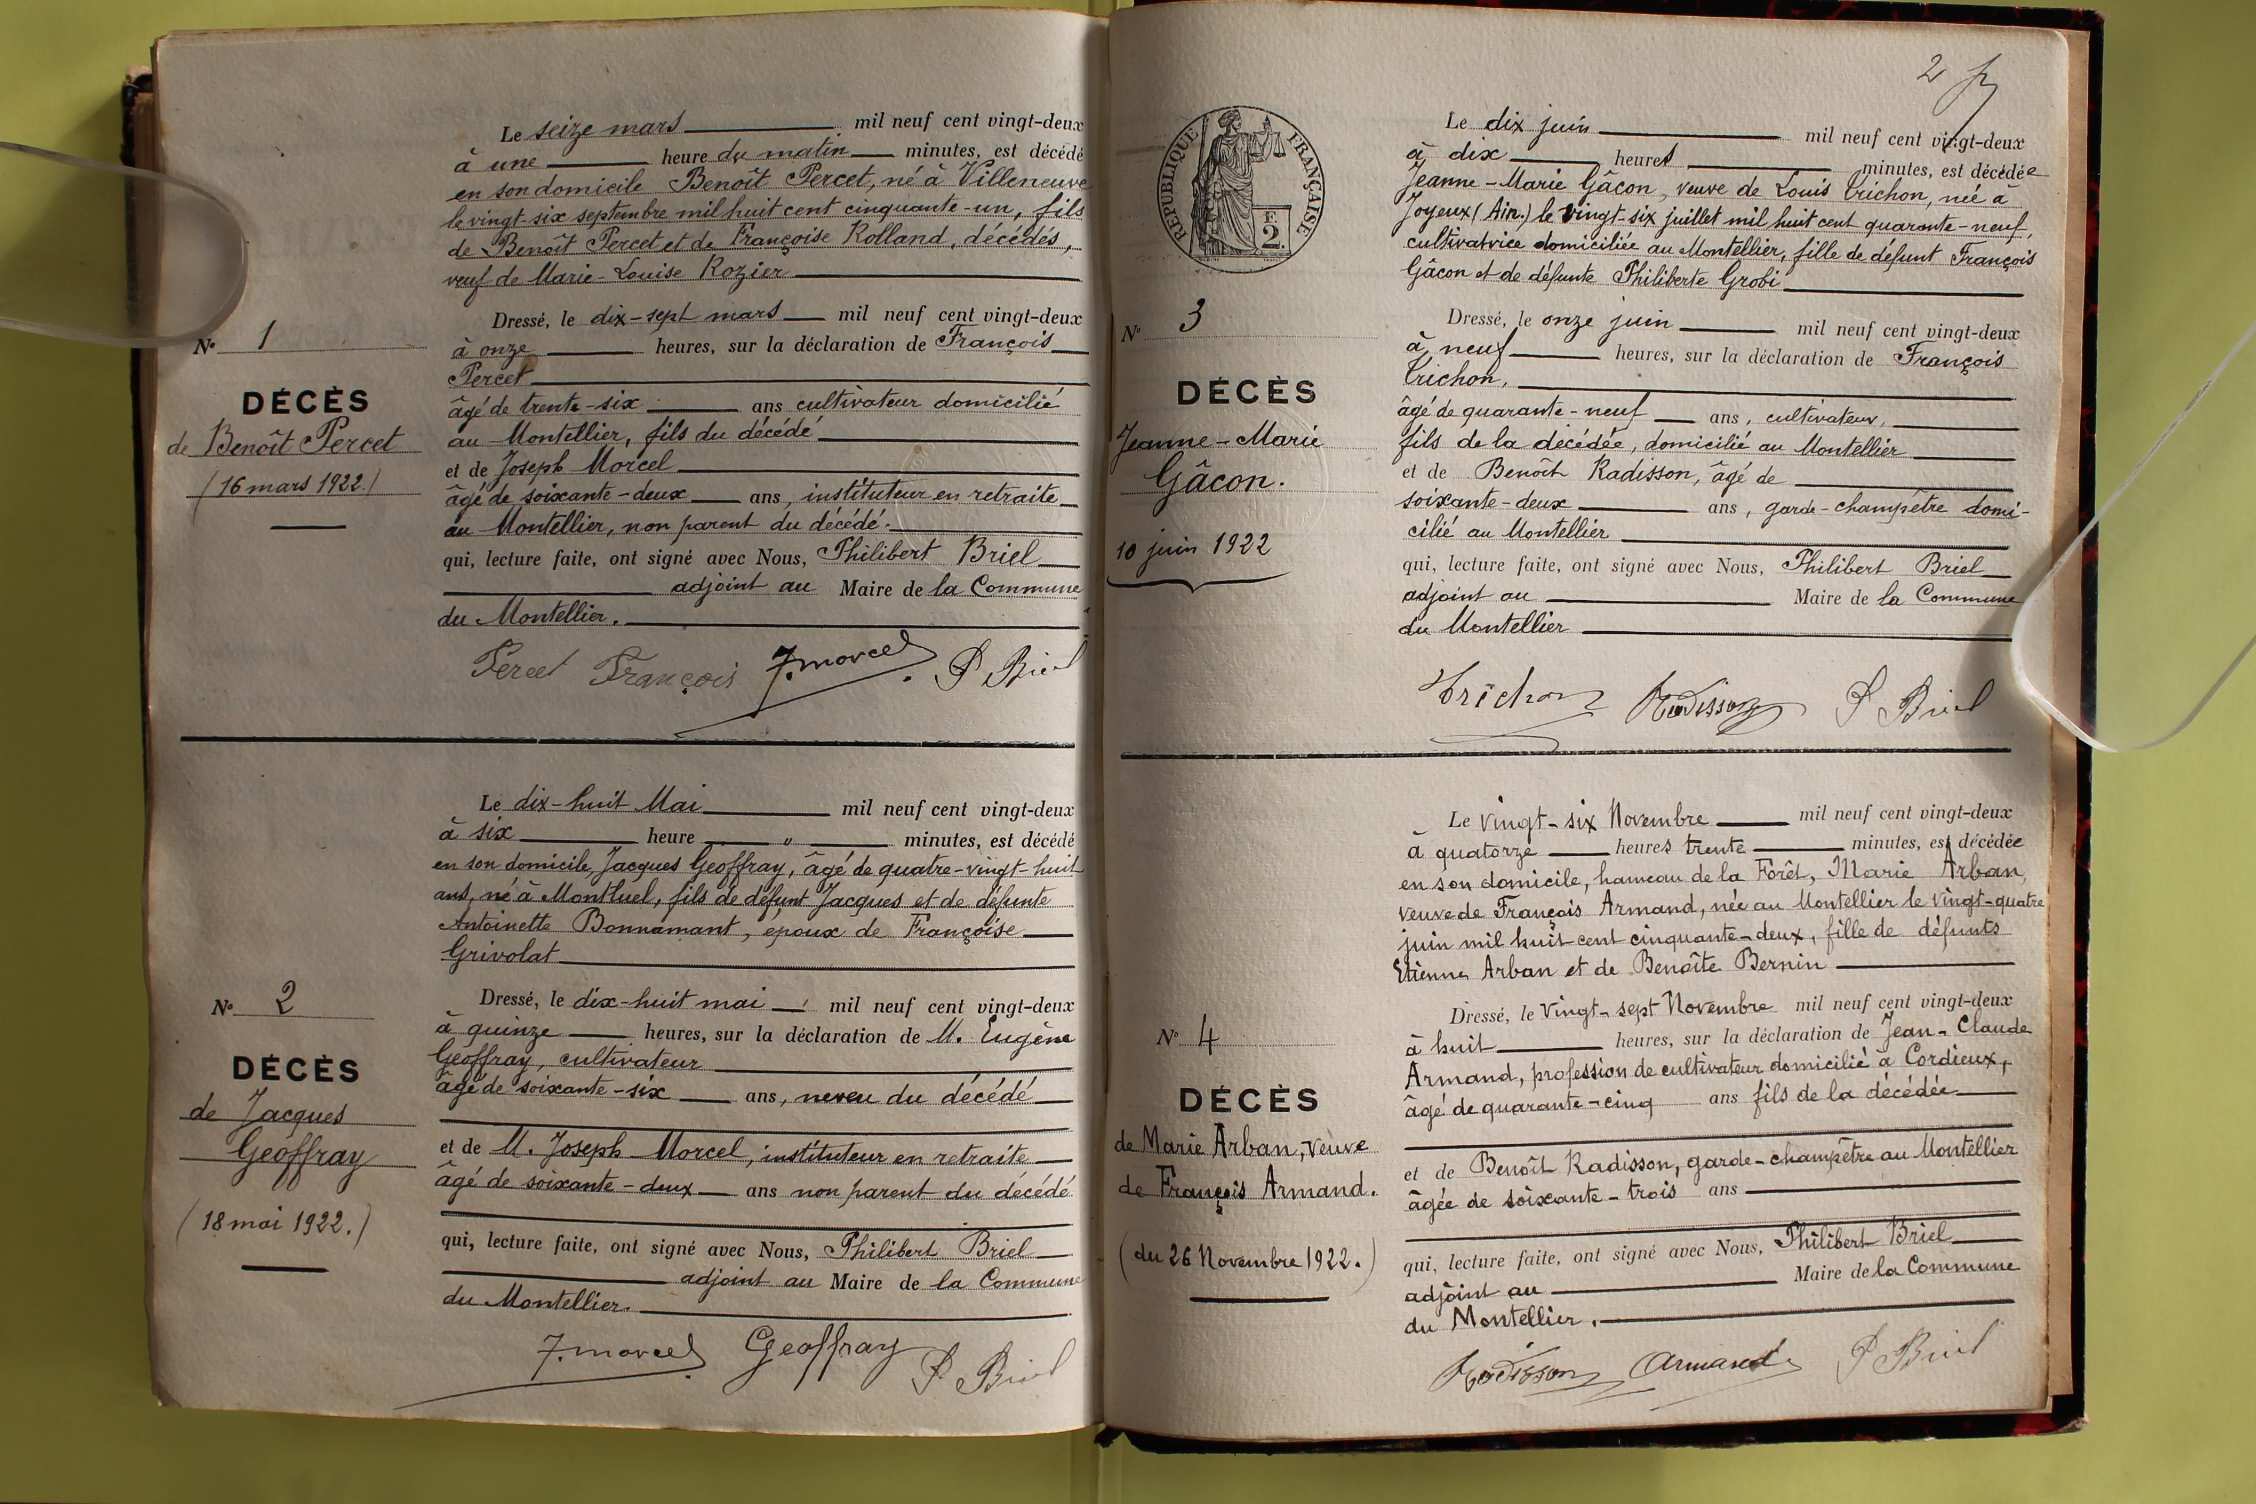 Le seize mars mil neuf cent vingt-deux
à une heure du matin minutes, est décédé
en son domicile Benoît Percet, né à Villeneuve
le vingt-six septembre mil huit cent cinquante-un, fils
de Benoît Percet et de Françoise Rolland, décédés,
veuf de Marie-Louise Rozier
Dressé, le dix-sept mars mil neuf cent vingt-deux
à onze heures, sur la déclaration de François
Percet
âgé de trente-six ans cultivateur domicilié
au Montellier, fils du décédé
et de Joseph Morcel
âgé de soixante-deux ans, instituteur en retraite
au Montellier, non parent du décédé.
qui, lecture faite, ont signé avec Nous, Philibert Briel
adjoint au Maire de la Commune
du Montellier.
Percet François J. morcel P. Briel
N° 1
DÉCÈS
de Benoît Percet
(16 mars 1922)
Le dix-huit Mai mil neuf cent vingt-deux
à six heure " minutes, est décédé
en son domicile Jacques Geoffray, âgé de quatre-vingt-huit
ans, né à Montluel, fils de défunt Jacques et de défunte
Antoinette Bonnamant, époux de Françoise
Grivolat
Dressé, le dix-huit mai mil neuf cent vingt-deux
à quinze heures, sur la déclaration de M. Eugène
Geoffray, cultivateur
âgé de soixante-six ans, neveu du décédé
et de M. Joseph Morcel, instituteur en retraite
âgé de soixante-deux ans non parent du décédé
qui, lecture faite, ont signé avec Nous, Philibert Briel
adjoint au Maire de la Commune
du Montellier.
J. morcel Geoffray P. Briel
N° 2
DÉCÈS
de Jacques
Geoffray
(18 mai 1922.)
2
RÉPUBLIQUE FRANÇAISE
F.
2.
Le dix juin mil neuf cent vingt-deux
à dix heures minutes, est décédée
Jeanne-Marie Gâcon, veuve de Louis Trichon, née à
Joyeux (Ain.) le vingt-six juillet mil huit cent quarante-neuf,
cultivatrice domiciliée au Montellier, fille de défunt François
Gâcon et de défunte Philiberte Grobi
Dressé, le onze juin mil neuf cent vingt-deux
à neuf heures, sur la déclaration de François
Trichon,
âgé de quarante-neuf ans, cultivateur,
fils de la décédée, domicilié au Montellier
et de Benoît Radisson, âgé de
soixante-deux ans, garde-champêtre domi-
cilié au Montellier
qui, lecture faite, ont signé avec Nous, Philibert Briel
adjoint au Maire de la Commune
du Montellier
Trichon Radisson P. Briel
N° 3
DÉCÈS
Jeanne-Marie
Gâcon.
10 juin 1922
Le vingt-six Novembre mil neuf cent vingt-deux
à quatorze heures trente minutes, est décédée
en son domicile, hameau de la Forêt, Marie Arban,
veuve de François Armand, née au Montellier le vingt-quatre
juin mil huit cent cinquante-deux, fille de défunts
Etienne Arban et de Benoîte Bernin
Dressé, le vingt-sept Novembre mil neuf cent vingt-deux
à huit heures, sur la déclaration de Jean-Claude
Armand, profession de cultivateur domicilié à Cordieux,
âgé de quarante-cinq ans fils de la décédée
et de Benoît Radisson, garde-champêtre au Montellier
âgée de soixante-trois ans
qui, lecture faite, ont signé avec Nous, Philibert Briel
adjoint au Maire de la Commune
du Montellier.
Radisson Armand P. Briel
N° 4
DÉCÈS
de Marie Arban, veuve
de François Armand.
(du 26 Novembre 1922.)